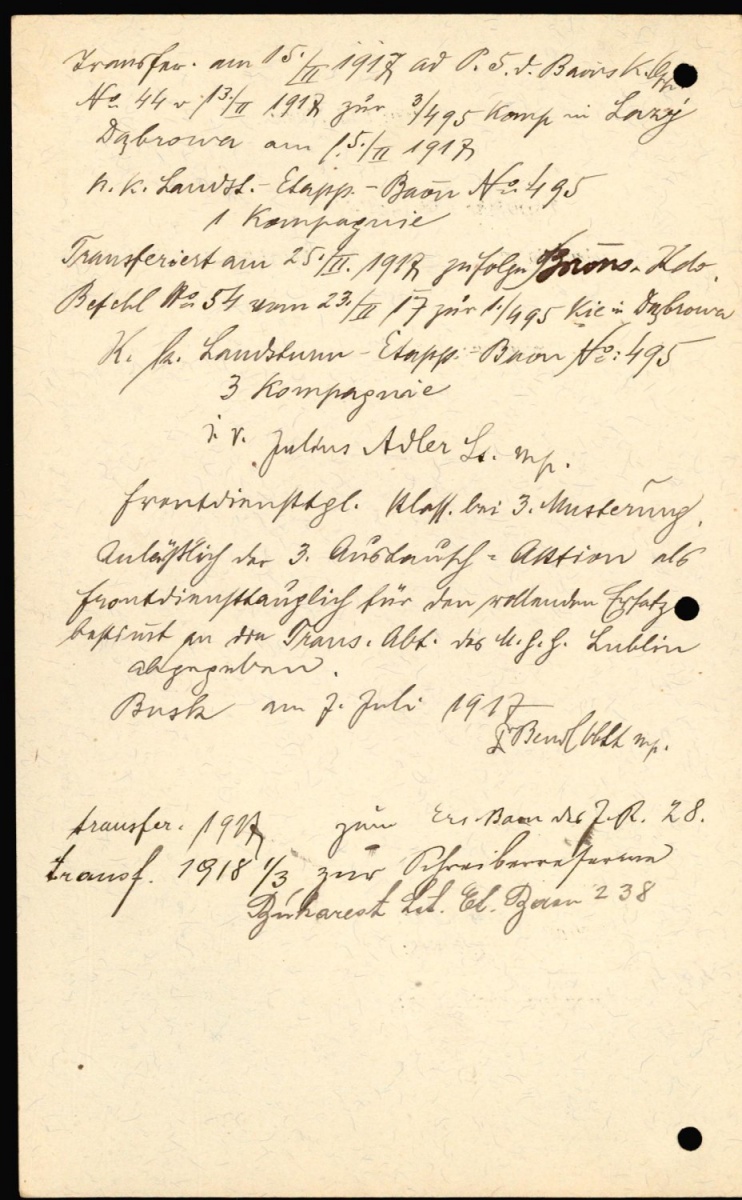 Transfer. am 15./II 1917 ad P. 5. d. Baons K.
No. 44 v. 13/II 1917 zur 3/495 Komp in Lazy
Dąbrowa am 15./II 1917
k. k. Landst.- Etapp.- Baōn No. 495
1 Kompagnie
Transferiert am 25./II. 1917 zufolge Baōns- Kdo.
Befehl No 54 vom 23./II 17 zur 1./495 Kie in Dąbrowa
K. k. Landsturm - Etapp.- Baon No: 495
3 Kompagnie
i. v. Julius Adler Lt. mp.
frontdiensttgl. Klass. bei 3. Musterung.
Anläßlich der 3. Austausch = Aktion als
frontdiensttauglich für den rollenden Ersatz
bestimt an die Trans. Abt. des M. G. G. Lublin
abgegeben.
Busk am 7. Juli 1917
Bendl Oblt mp.
transfer. 1917 zum Ers. Baon des I. R. 28.
transf. 1918 1/3 zur Schreiberreserve
Bukarest Lst. Et. Baon 238